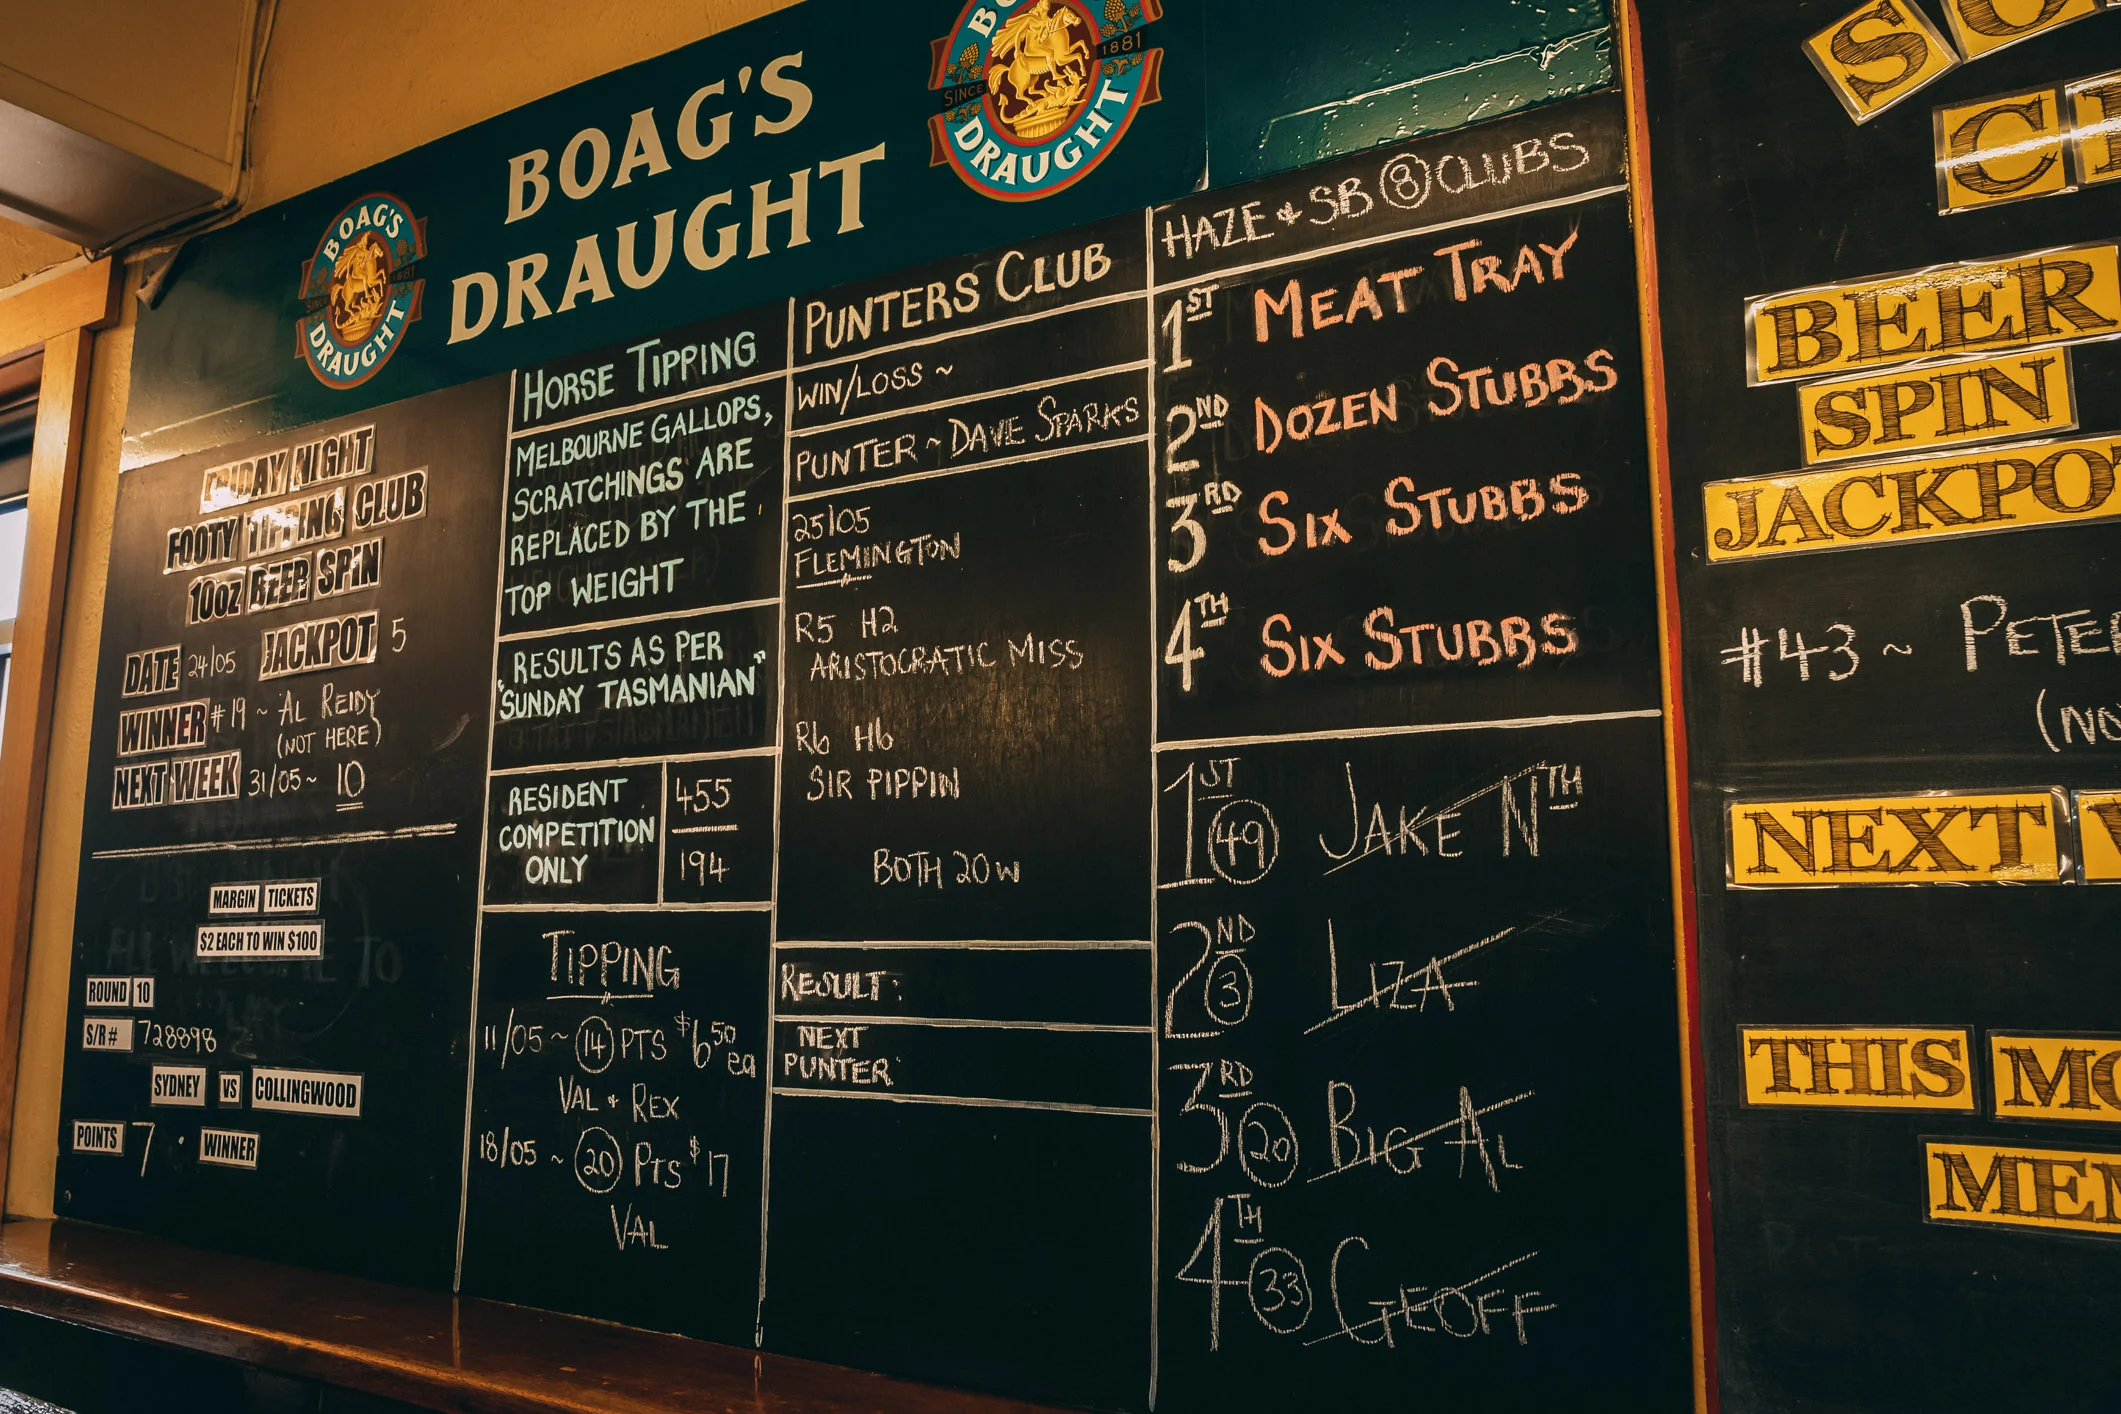 BOAG'S
DRAUGHT
BOAG'S
1881
DRAUGHT
SINCE
1881
DRAUGHT
FRIDAY NIGHT
FOOTY TIPPING CLUB
10oz BEER SPIN
JACKPOT 5
DATE 24/05
WINNER #19 ~ AL REIDY
(NOT HERE)
NEXT WEEK 31/05 ~ 10
MARGIN TICKETS
$2 EACH TO WIN $100
ROUND 10
S/R# 728898
SYDNEY VS COLLINGWOOD
POINTS 7 WINNER
HORSE TIPPING
MELBOURNE GALLOPS,
SCRATCHINGS ARE
REPLACED BY THE
TOP WEIGHT
RESULTS AS PER
"SUNDAY TASMANIAN"
RESIDENT
COMPETITION
ONLY
455
194
TIPPING
11/05 ~ 14 PTS $6.50 ea
VAL & REX
18/05 ~ 20 PTS $17
VAL
PUNTERS CLUB
WIN/LOSS ~
PUNTER ~ DAVE SPARKS
25/05
FLEMINGTON
R5 H2
ARISTOCRATIC MISS
R6 H6
SIR PIPPIN
BOTH 20W
RESULT:
NEXT
PUNTER:
HAZE & SB 8 CLUBS
1ST MEAT TRAY
2ND DOZEN STUBBS
3RD SIX STUBBS
4TH SIX STUBBS
1ST 49 JAKE NTH
2ND 3 LIZA
3RD 20 BIG AL
4TH 33 GEOFF
BEER
SPIN
JACKPO
#43 ~ PETE
(NO
NEXT
THIS MO
MEM